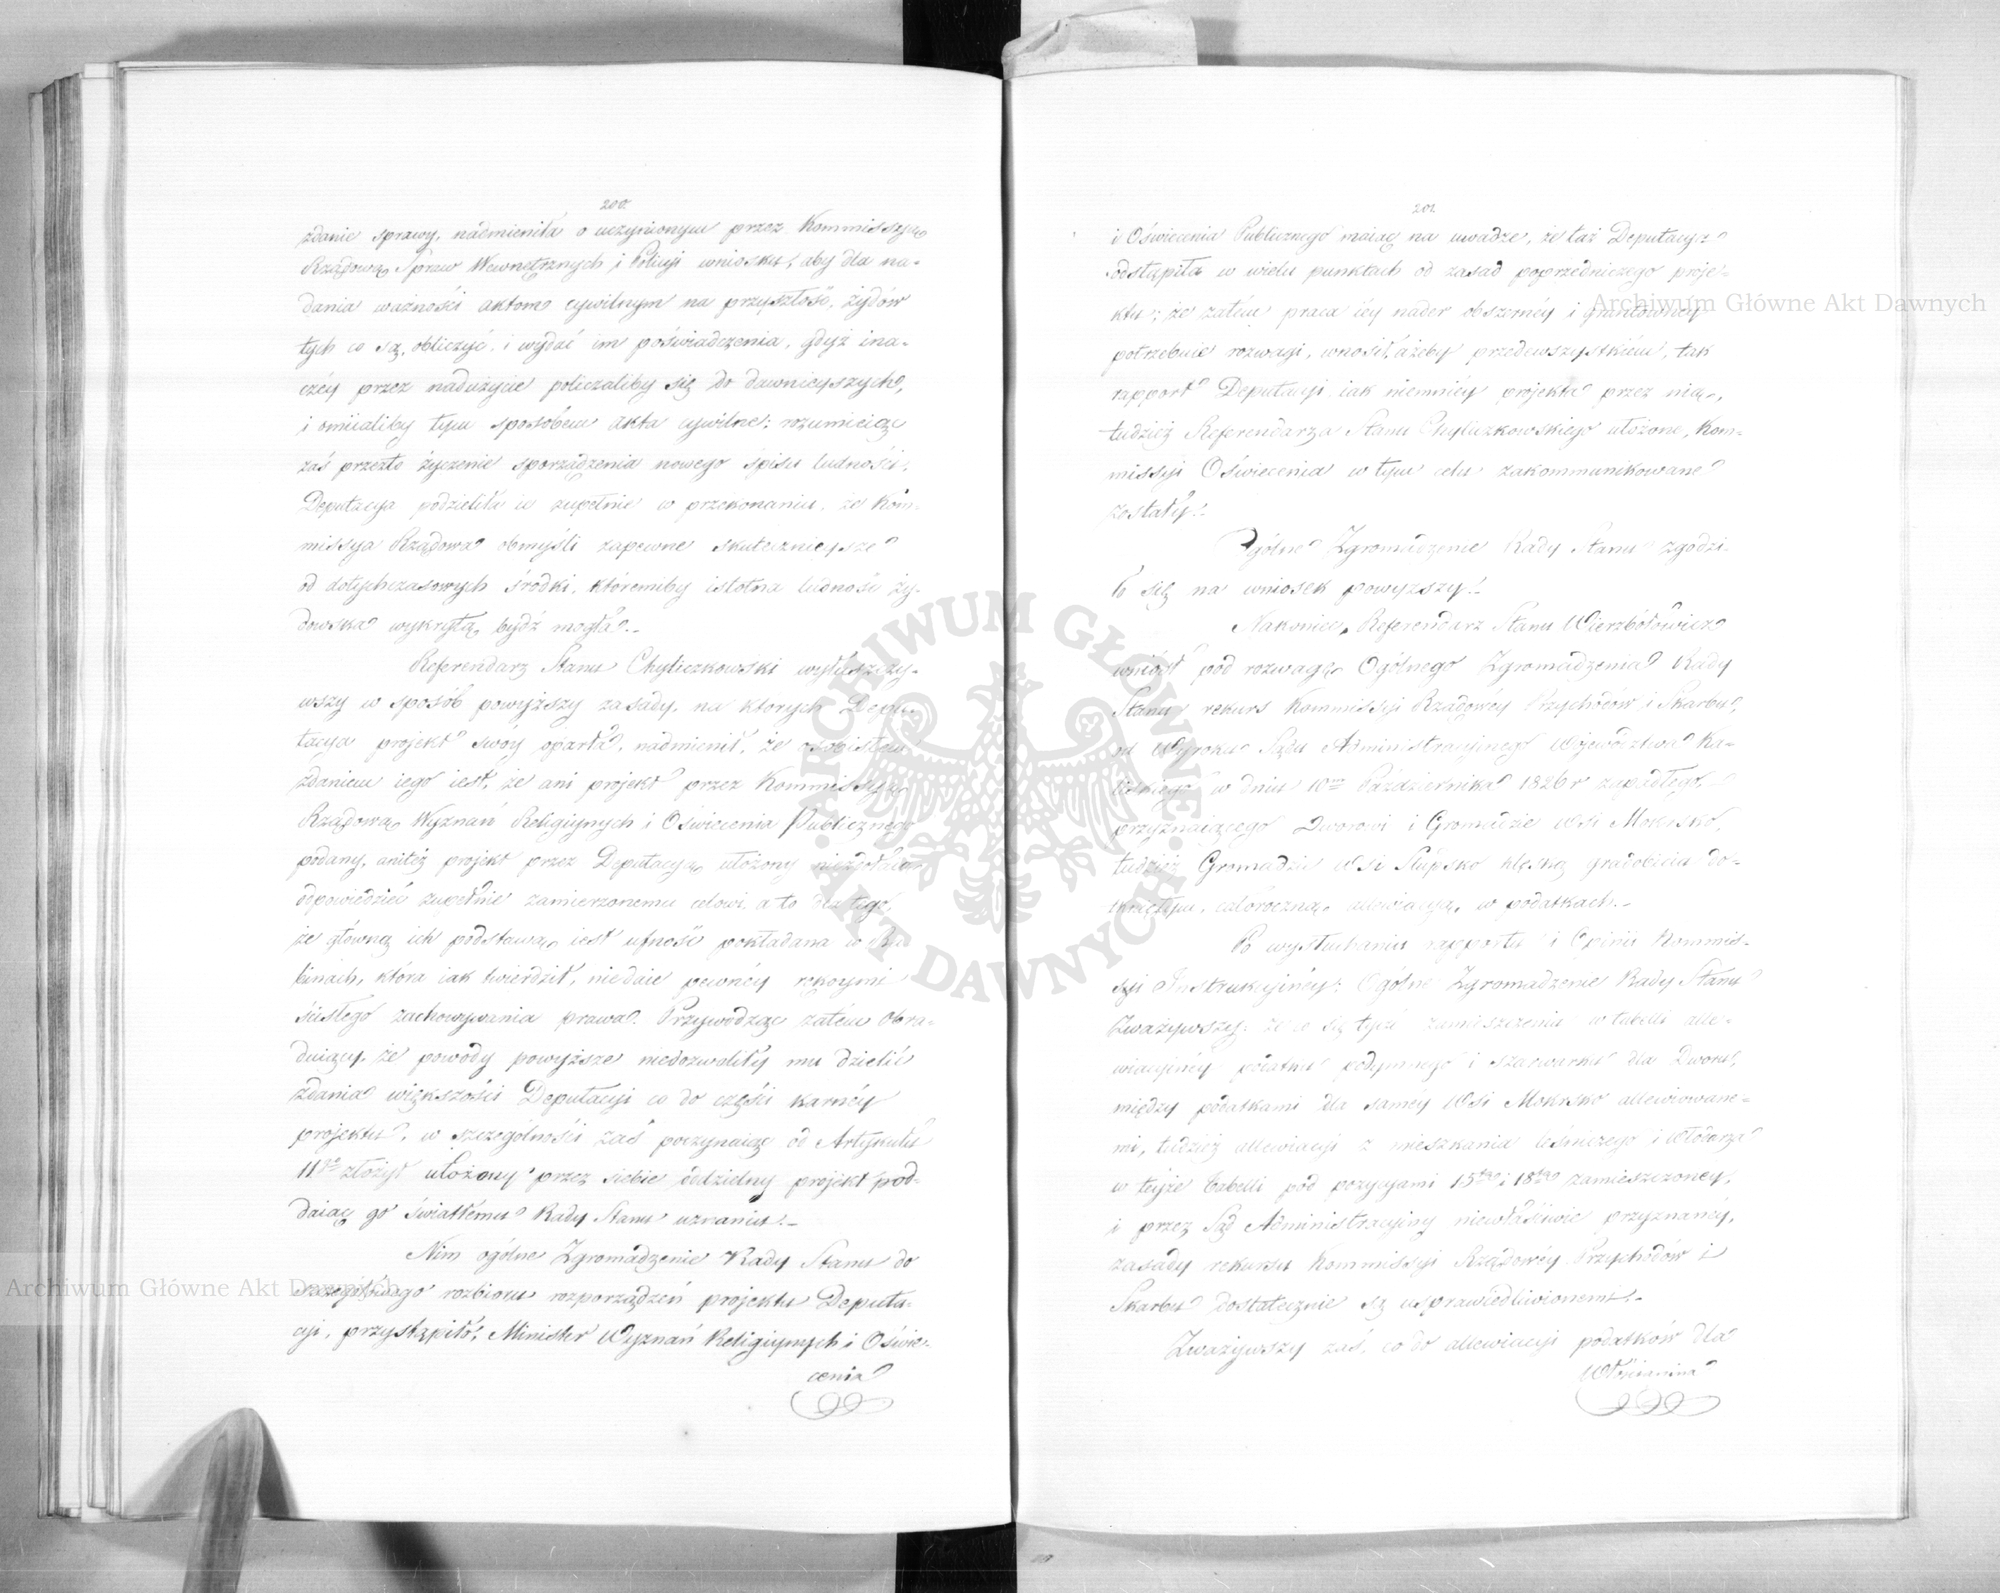 200.
zdanie sprawy, nadmieniła o uczynionym przez Kommissyą
Rządową Spraw Wewnętrznych i Policyi wniosku, aby dla na-
dania ważności aktom cywilnym na przyszłość, żydów
tych co są, obliczyć i wydać im poświadczenia, gdyż ina-
czéy przez nadużycie policzaliby się do dawnieyszych,
i omiialiby tym sposobem akta cywilne; rozumieiąc
zaś przezto życzenie sporządzenia nowego spisu ludności,
Deputacya podzieliła ie zupełnie w przekonaniu, że Kom-
missya Rządowa obmyśli zapewne skutecznieysze
od dotychczasowych środki, któremiby istotna ludność ży-
dowska wykrytą bydź mogła.-
Referendarz Stanu Chyliczkowski wyłuszczy-
wszy w sposób powyższy zasady, na których Depu-
tacya projekt swóy oparła, nadmienił, że osobistem
zdaniem iego iest, że ani projekt przez Kommissyą
Rządową Wyznań Religiynych i Oświecenia Publicznego
podany, aniteż projekt przez Deputacyą ułożony niezdołaią
odpowiedzieć zupełnie zamierzonemu celowi, a to dla tego,
że główną ich podstawą iest ufność pokładana w Ra-
binach, która iak twierdził, niedaie pewnéy rękoymi
ścisłego zachowywania prawa. Przywodząc zatem Obra-
duiący, że powody powyższe niedozwoliły mu dzielić
zdania większości Deputacyi co do części karnéy
projektu, w szczególności zaś poczynaiąc od Artykułu
11go złożył ułożony przez siebie oddzielny projekt pod-
daiąc go światłemu Rady Stanu uznaniu.-
Nim ogólne Zgromadzenie Rady Stanu do
szczegółowego rozbioru rozporządzeń projektu Deputa-
cyi, przystąpiło, Minister Wyznań Religiynych i Oświe-
cenia
201.
i Oświecenia Publicznego maiąc na uwadze, że taż Deputacya
odstąpiła w wielu punktach od zasad poprzedniczego proje-
ktu; że zatem praca iéy nader obszernéy i gruntownéy
potrzebuie rozwagi, wnosił, ażeby przedewszystkiém, tak
rapport Deputacyi iak niemniéy projekta przez nią,
tudzież Referendarza Stanu Chyliczkowskiego ułożone, Kom-
missyi Oświecenia w tym celu zakommunikowane
zostały.-
Ogólne Zgromadzenie Rady Stanu zgodzi-
ło się na wniosek powyższy.-
Nakoniec, Referendarz Stanu Wierzbołowicz
wniósł pod rozwagę Ogólnego Zgromadzenia Rady
Stanu rekurs Kommissyi Rządowéy Przychodów i Skarbu,
od Wyroku Sądu Administracyjnego Województwa Ka-
liskiego w dniu 10m Października 1826 r zapadłego,
przyznaiącego Dworowi i Gromadzie wsi Mokrsko,
tudzież Gromadzie wsi Słupsko klęską gradobicia do-
tkniętym, całoroczną allewiacyą w podatkach.-
Po wysłuchaniu rapportu i Opinii Kommis-
syi Instrukcyinéy; Ogólne Zgromadzenie Rady Stanu
Zważywszy: że co się tycze zamieszczenia w tabelli alle-
wiacyinéy podatku podymnego i szarwarku dla Dworu,
między podatkami dla saméy wsi Mokrsko allewiowane-
mi, tudzież allewiacyi z mieszkania leśniczego i Włodarza
w teyże tabelli pod pozycyami 15tą i 18tą zamieszczonéy,
i przez Sąd Administracyiny niewłaściwie przyznanéy,
zasady rekursu Kommissyi Rządowéy Przychodów i
Skarbu dostatecznie są usprawiedliwionemi.-
Zważywszy zaś, co do allewiacyi podatków dla
Włościanina
Archiwum Główne Akt Dawnych
Archiwum Główne Akt Dawnych
ARCHIWUM GŁÓWNE
AKT DAWNYCH